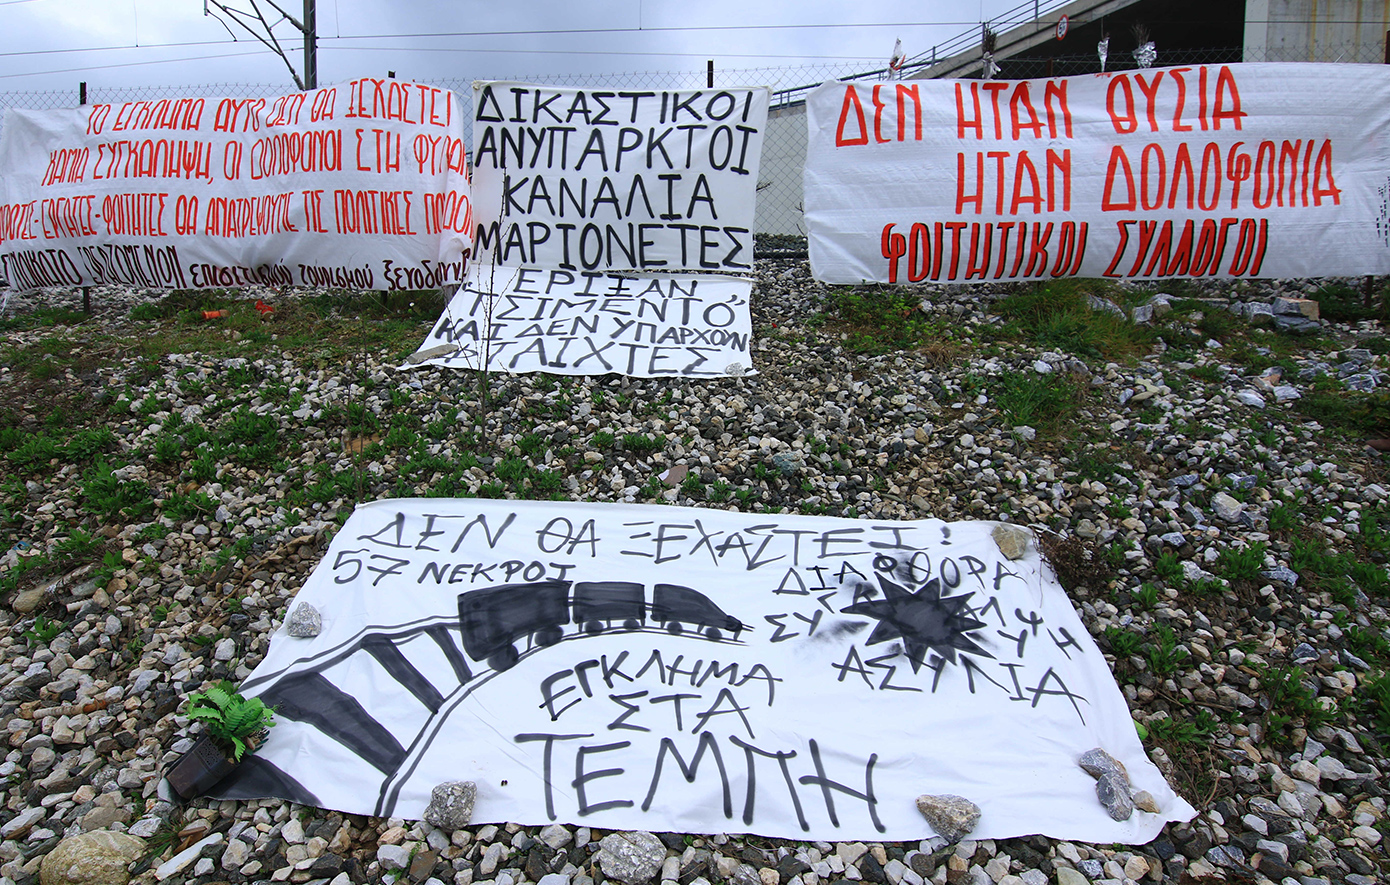 ΤΟ ΕΓΚΛΗΜΑ ΑΥΤΟ ΔΕΝ ΘΑ ΞΕΧΑΣΤΕΙ
ΚΑΜΙΑ ΣΥΓΚΑΛΥΨΗ, ΟΙ ΔΟΛΟΦΟΝΟΙ ΣΤΗ
ΕΡΓΑΤΕΣ-ΦΟΙΤΗΤΕΣ ΘΑ ΑΝΑΤΡΕΨΟΥΜΕ ΤΙΣ ΠΟΛΙΤΙΚΕΣ ΠΟΥ
ΕΡΓΑΖΟΜΕΝΩΝ ΕΠΙΣΙΤΙΣΜΟΥ ΤΟΥΡΙΣΜΟΥ
ΔΙΚΑΣΤΙΚΟΙ
ΑΝΥΠΑΡΚΤΟΙ
ΚΑΝΑΛΙΑ
ΜΑΡΙΟΝΕΤΕΣ
ΕΡΙΞΑΝ
ΤΣΙΜΕΝΤΟ
ΚΑΙ ΔΕΝ ΥΠΑΡΧΟΥΝ
ΦΤΑΙΧΤΕΣ
ΔΕΝ ΗΤΑΝ ΘΥΣΙΑ
ΗΤΑΝ ΔΟΛΟΦΟΝΙΑ
ΦΟΙΤΗΤΙΚΟΙ ΣΥΛΛΟΓΟΙ
ΔΕΝ ΘΑ ΞΕΧΑΣΤΕΙ!
57 ΝΕΚΡΟΙ
ΔΙΑΦΘΟΡΑ
ΣΥΓΚΑΛΥΨΗ
ΑΣΥΛΙΑ
ΕΓΚΛΗΜΑ
ΣΤΑ
ΤΕΜΠΗ